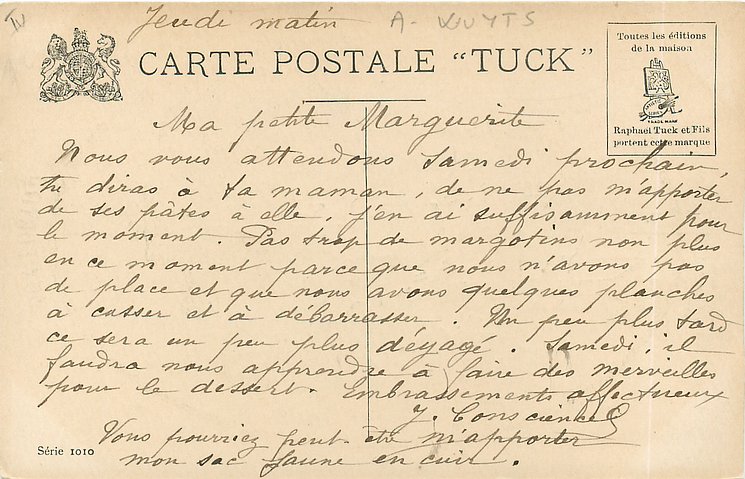 Jeudi matin
A. LUYTS
CARTE POSTALE "TUCK"
Toutes les éditions
de la maison
TRADE MARK
Raphael Tuck et Fils
portent cette marque
Ma petite Marguerite
Nous vous attendons Samedi prochain,
tu diras à ta maman, de ne pas m'apporter
de ses pâtes à elle, j'en ai suffisamment pour
le moment. Pas trop de margotins non plus
en ce moment parce que nous n'avons pas
de place et que nous avons quelques planches
à casser et à debarrasser. Un peu plus tard
ce sera un peu plus dégagé. Samedi, il
faudra nous apprendre à faire des merveilles
pour le dessert. Embrassements affectueux
J. Conscience
Vous pourriez peut-être m'apporter
mon sac jaune en cuir.
Série 1010